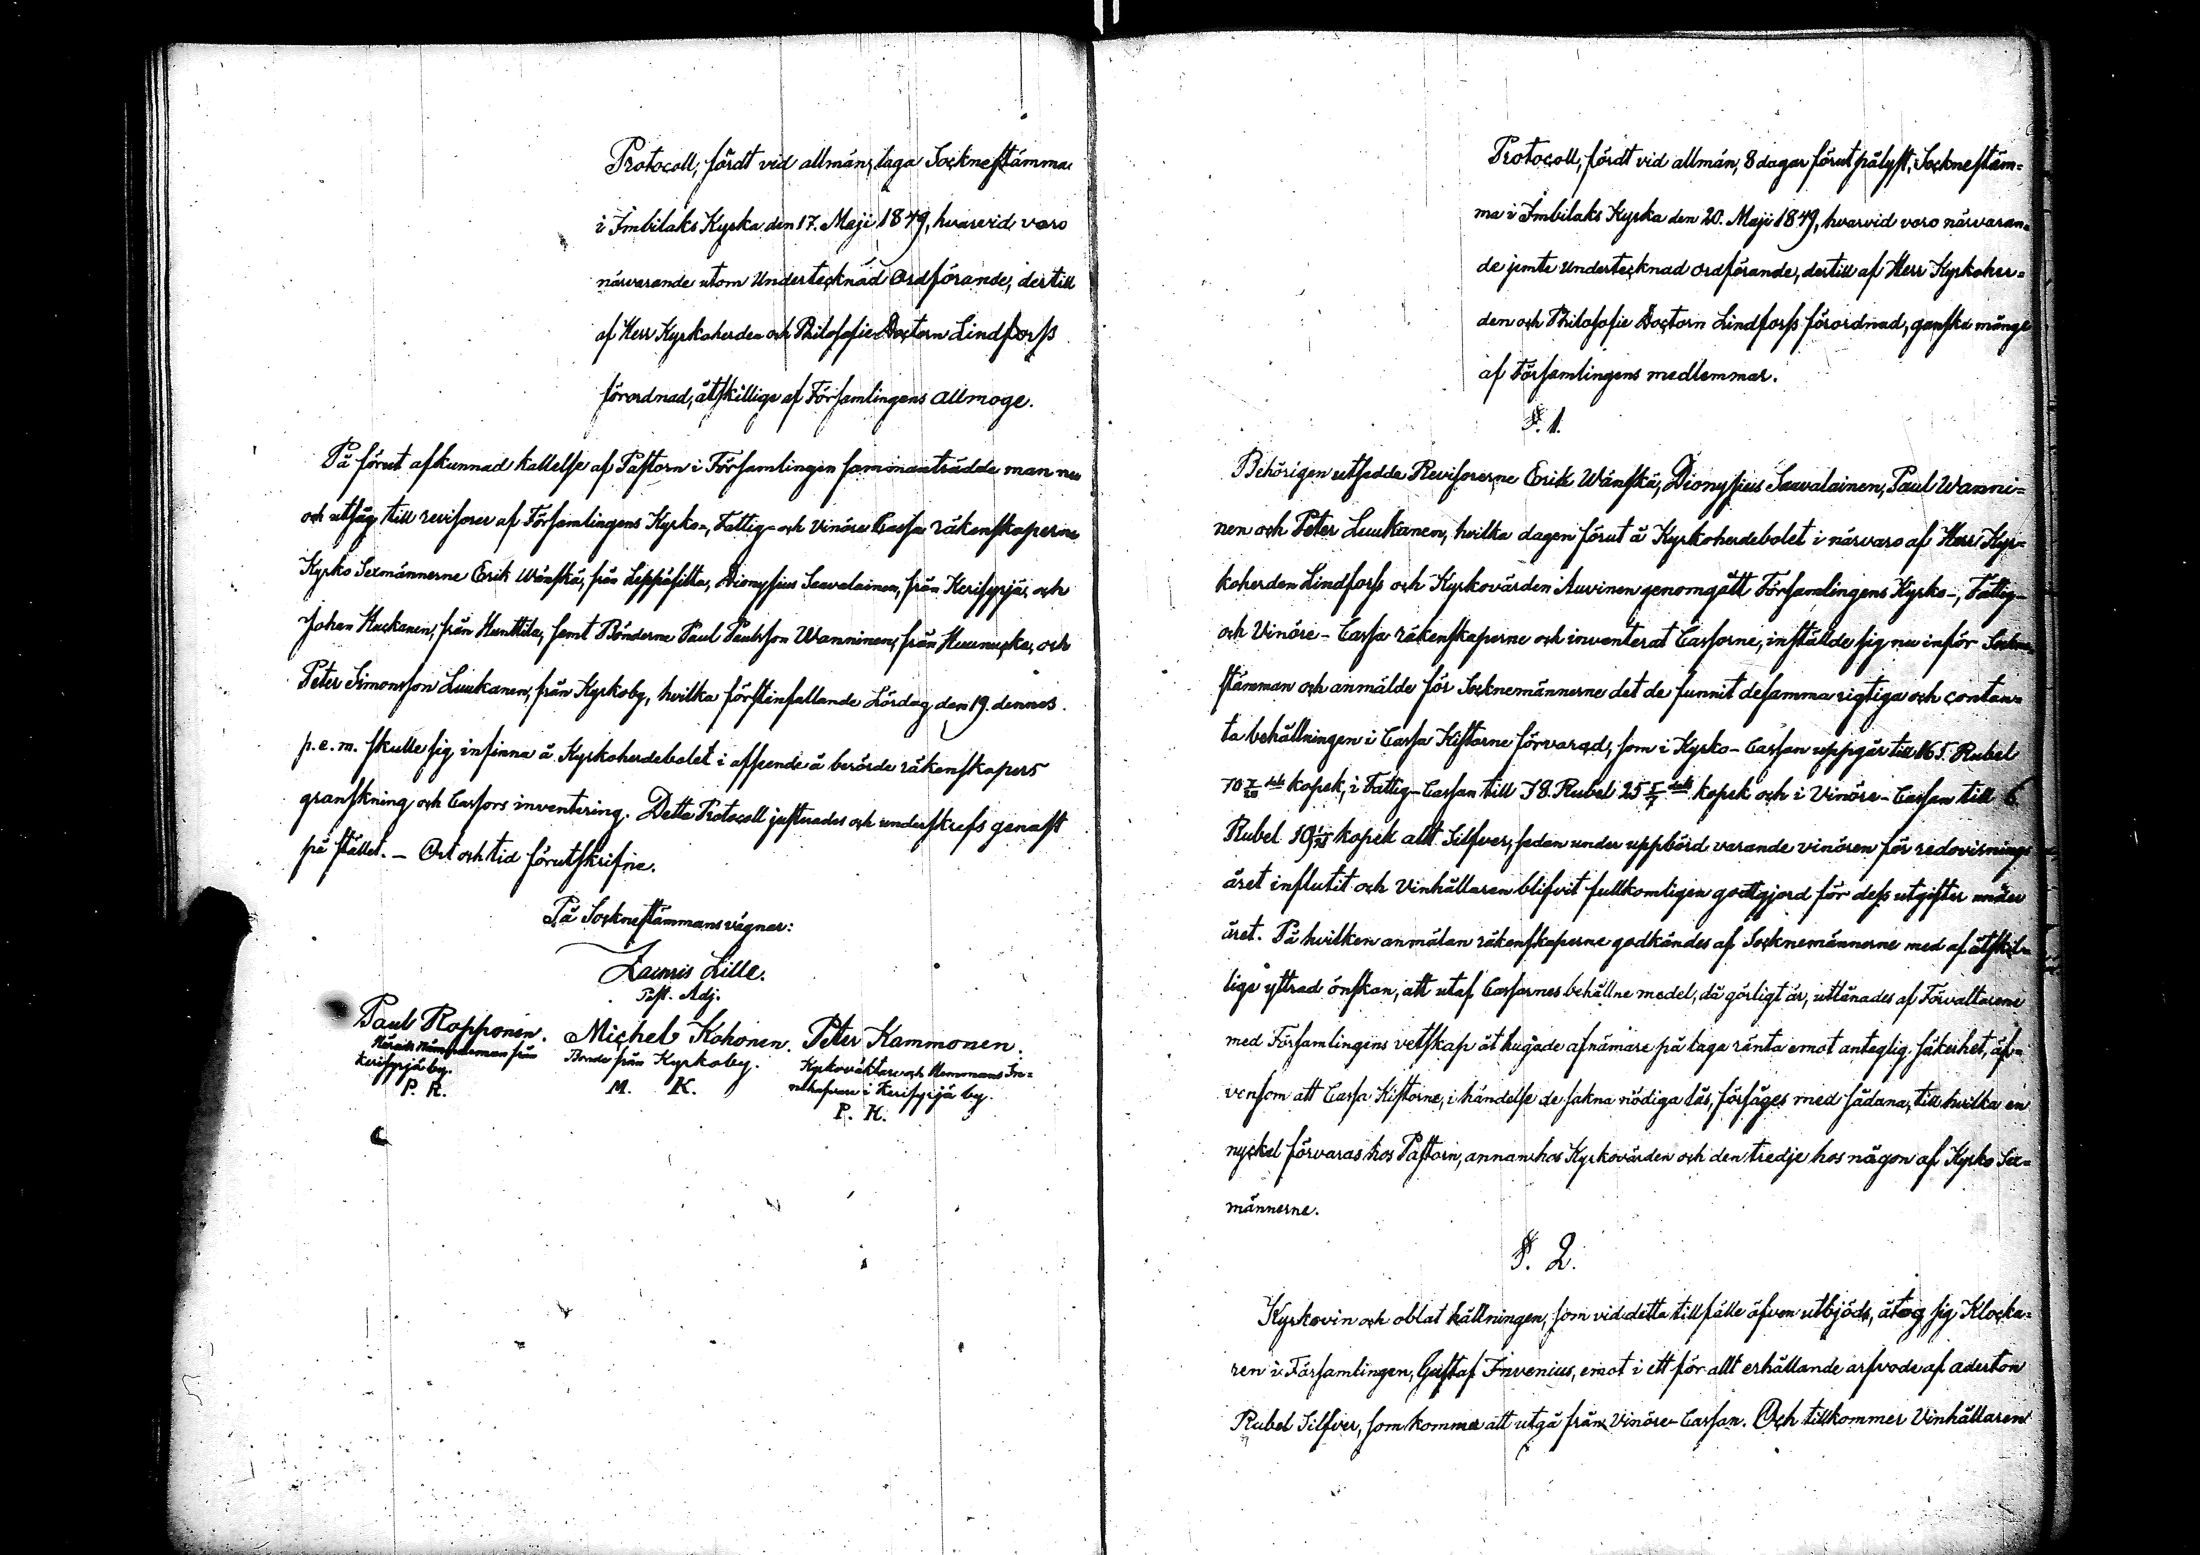 Protocoll, fördt vid allmän, laga Sockneſtämma
i Imbilaks Kyrka den 17. Maji 1849, hvarvid voro
närvarande utom Undertecknad Ordförande, dertill
af Herr Kyrkoherden och Philoſofie Doctorn Lindforſs
förordnad, åtſkillige af Förſamlingens Allmoge.
På förut afkunnad kallelſe af Paſtorn i Förſamlingen ſammanträdde man nu
och utſåg till reviſorer af Förſamlingens Kyrko-, Fattig- och Vinöre Caſsa räkenſkaperne
Kyrko Sexmännerne Erik Wänſkä, från Leppäſilta, Dionyſius Saavalainen, från Keriſyrjä, och
Johan Huckanen, från Hunttila, ſamt Bönderne Paul Paulsſon Wanninen, från Huunucka, och
Peter Simonsſon Luukanen, från Kyrkoby, hvilka förſtinfallande Lördag den 19. dennes
p.e.m. ſkulle ſig infinna å Kyrkoherdebolet i afſeende å berörde räkenſkapers
granſkning och Caſsors inventering. Detta Protocoll juſterades och underſkrefs genaſt
på ſtället. — Ort och tid förutſkrifne.
På Sockneſtämmans vägnar:
Lauris Lille.
Paſt. Adj.
Paul Rapponen. Michel Kohonen. Peter Kammonen.
Härads Nämndeman från Bonde från Kyrkoby. Kyrkoväktare och Hemmans In-
Keriſyrjä by. nehafvare i Keriſyrjä by.
P. R. M. K. P. K.
Protocoll, fördt vid allmän, 8 dagar förut pålyſt, Sockneſtäm-
ma i Imbilaks Kyrka den 20. Maji 1849, hvarvid voro närvaran-
de jemte Undertecknad Ordförande, dertill af Herr Kyrkoher-
den och Philoſofie Doctorn Lindforſs förordnad, ganſka månge
af Förſamlingens medlemmar.
§. 1.
Behörigen utſedda Reviſorerne Erik Wänſkä, Dionyſius Saavalainen, Paul Wanni-
nen och Peter Luukanen, hvilka dagen förut å Kyrkoherdebolet i närvaro af Herr Kyr-
koherden Lindforſs och Kyrkovärden Auvinen genomgått Förſamlingens Kyrko-, Fattig-
och Vinöre-Caſsa räkenſkaperne och inventerat Caſsorne, inſtällde ſig nu inför Sockne-
ſtämman och anmälde för Socknemännerne det de funnit deſamma rigtiga och contan-
ta behållningen i Caſsa Kiſtorne förvarad, ſom i Kyrko-Caſsan uppgår till 165. Rubel
70 7/20 dels kopek, i Fattig-Caſsan till 78. Rubel 25 5/7 dels kopek och i Vinöre-Caſsan till 6
Rubel 19 1/21 kopek allt Silfver, ſedan under uppbörd varande vinören för redovisnings
året influtit och Vinhållaren blifvit fullkomligen godtgjord för deſs utgifter under
året. På hvilken anmälan räkenſkaperne godkändes af Socknemännerne med af åtſkil-
lige yttrad önſkan, att utaf Caſsornes behållne medel, då görligt är, utlånades af Förvaltarene
med Förſamlingens vetſkap åt hugade afnämare på laga ränta emot antaglig ſäkerhet, äf-
venſom att Caſsa Kiſtorne, i händelſe de ſakna nödiga lås, förſåges med ſådana, till hvilka en
nyckel förvaras hos Paſtorn, annan hos Kyrkovärden och den tredje hos någon af Kyrko Sex-
männerne.
§. 2.
Kyrkovin och oblat hållningen, ſom vid detta tillfälle äfven utbjöds, åtog ſig Klocka-
ren i Förſamlingen, Guſtaf Invenius, emot i ett för allt erhållande arfvode af aderton
Rubel Silfver, ſom kommer att utgå från Vinöre-Caſsan. Och tillkommer Vinhållaren